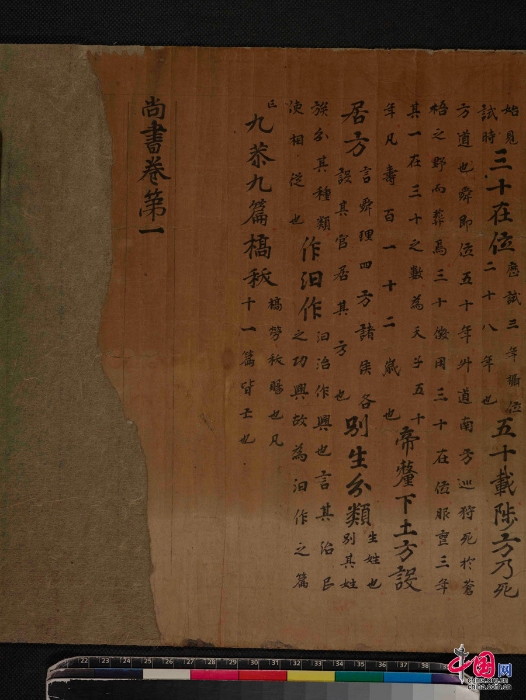 始見試時三十在位歷試三年攝位二十八年也五十載陟方乃死
方道也舜即位五十年升道南方巡狩死於蒼梧之野而葬焉三十徵用三十在位服喪三年
其一在三十之數為天子五十年凡壽百一十二歲也帝釐下土方設
居方言舜理四方諸侯各設其官居其方也別生分類生姓也別其姓
族分其種類使相從也作汩作汩治作興也言其治民之功興故為汩作之篇
亡九恭九篇槁飫槁勞飫賜也凡十一篇皆亡也
尚書卷第一
22 23 24 25 26 27 28 29 30 31 32 33 34 35 36 37 38
中国网
china.com.cn